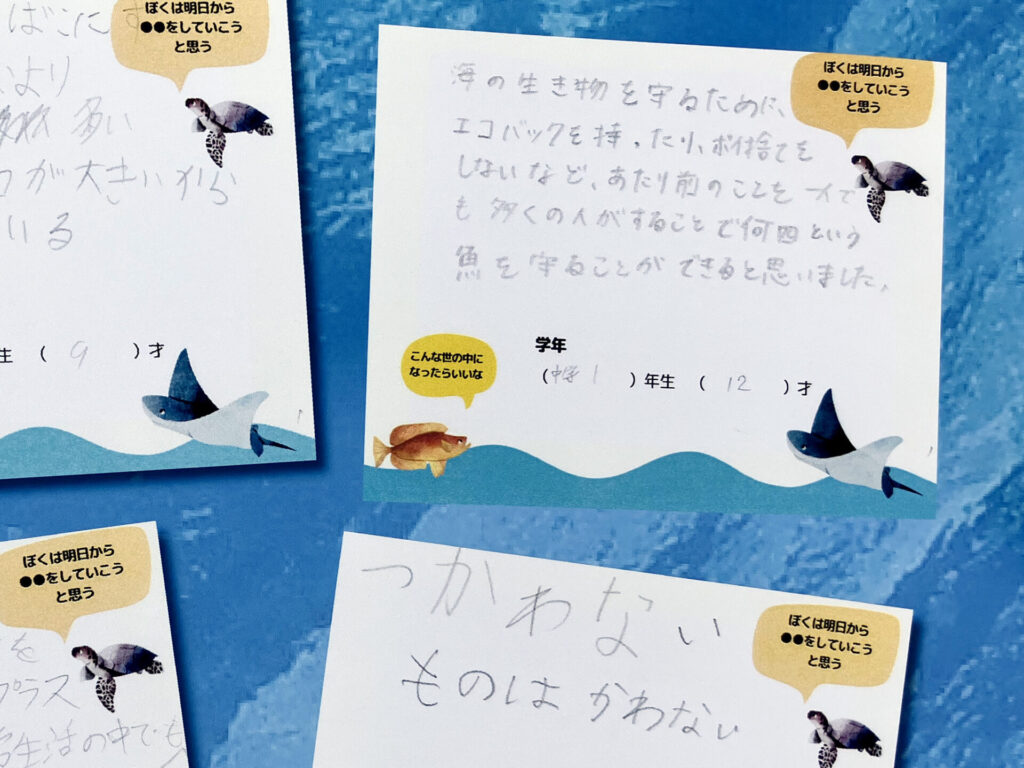 ばこにす
ぼくは明日から
●●をしていこう
と思う
より
多い
が大きいから
いる
生 ( 9 ) 才
ぼくは明日から
●●をしていこう
と思う
海の生き物を守るために、
エコバックを持ったり、ポイ捨てを
しないなど、あたり前のことを一人で
も多くの人がすることで何四という
魚を守ることができると思いました。
こんな世の中に
なったらいいな
学年
(中学1 ) 年生 ( 12 ) 才
ぼくは明日から
●●をしていこう
と思う
を
プラス
生活の中でも
つかわない
ものはかわない
ぼくは明日から
●●をしていこう
と思う